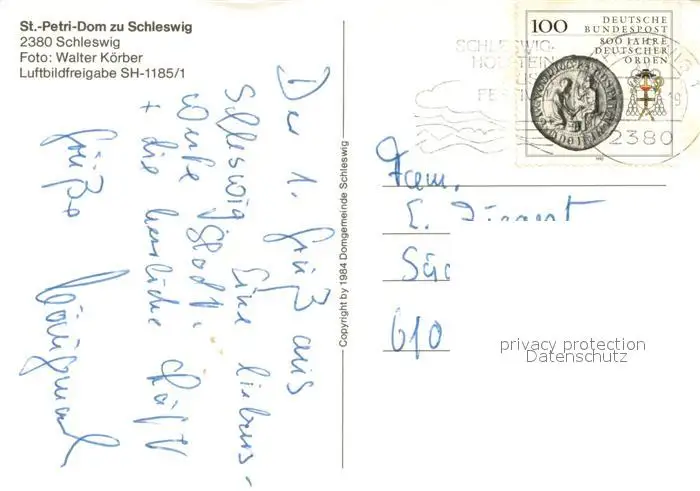 St.-Petri-Dom zu Schleswig
2380 Schleswig
Foto: Walter Körber
Luftbildfreigabe SH-1185/1
Der 1. Gruß aus
Schleswig. Eine liebens-
werte Stadt.
+ die herrliche Luft
Grüße
Copyright by 1984 Domgemeinde Schleswig
100
DEUTSCHE
BUNDESPOST
800 JAHRE
DEUTSCHER
ORDEN
SCHLESWIG-
HOLSTEIN
2380
Fam.
E.
610
privacy protection
Datenschutz